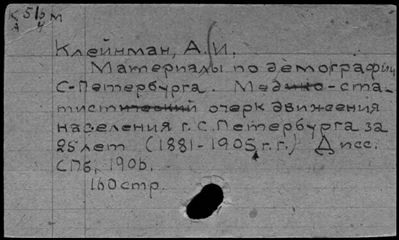 К 5/6 м
А 4
Клейнман, А. И.
Материалы по демографии
С-Петербурга. Медико-ста-
тистический очерк движения
населения г. С. Петербурга за
25 лет (1881-1905 г. г.) Дисс.
СПб, 1906.
160 стр.